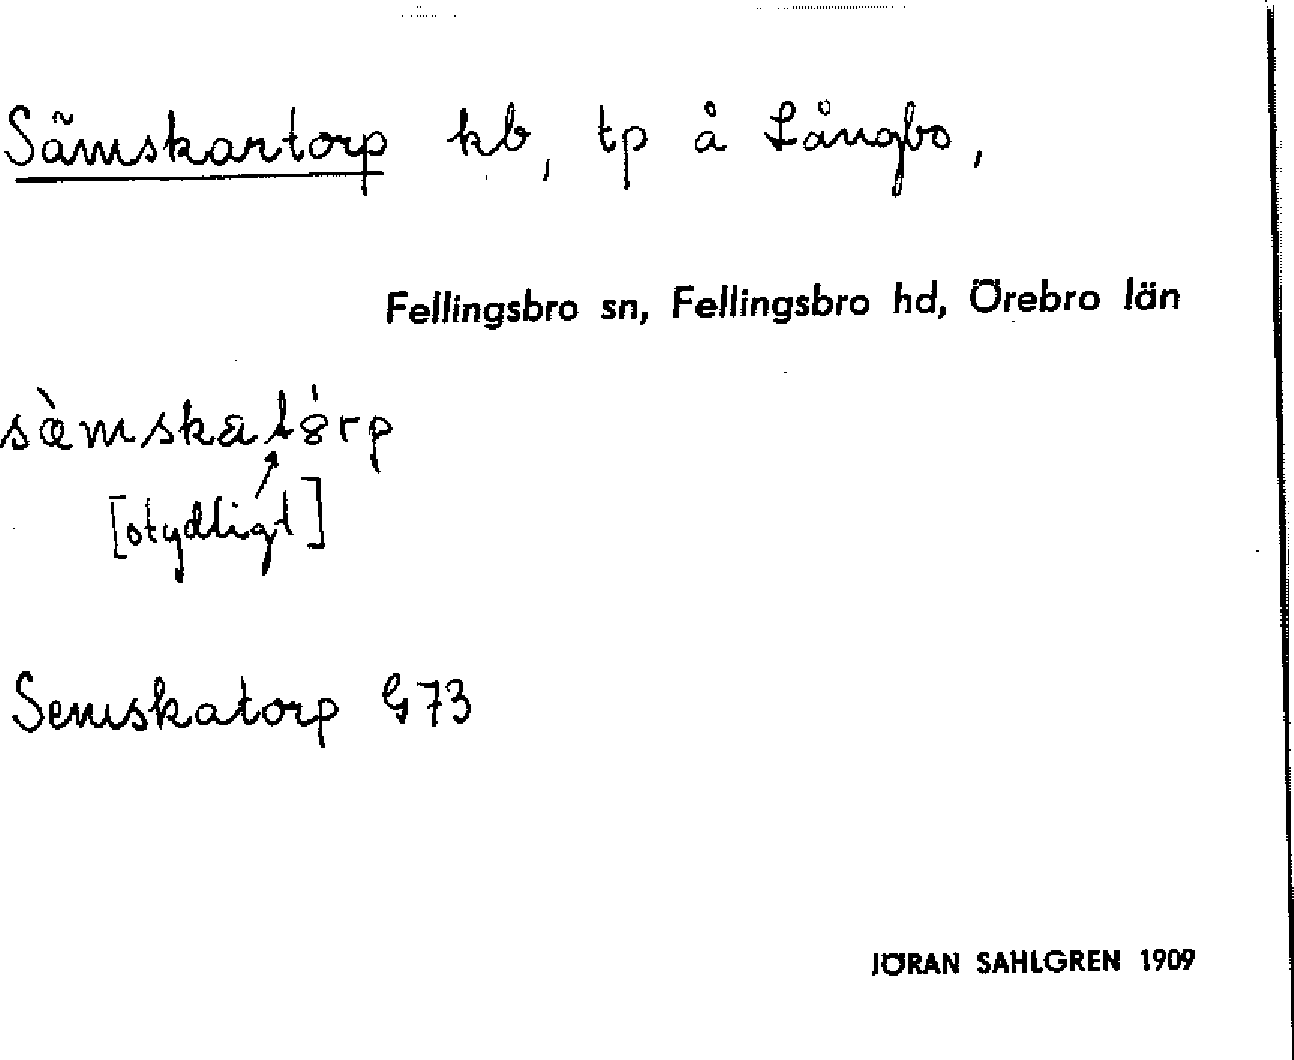 Sämskartorp kb, tp å Långbo,
Fellingsbro sn, Fellingsbro hd, Örebro län
sæ̀mskatórp
[otydligt]
Semskatorp G73
JÖRAN SAHLGREN 1909